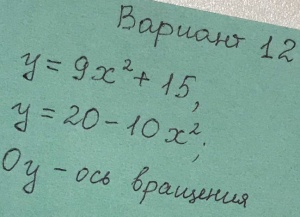 Вариант 12
y = 9x² + 15,
y = 20 - 10x²;
Oy - ось вращения